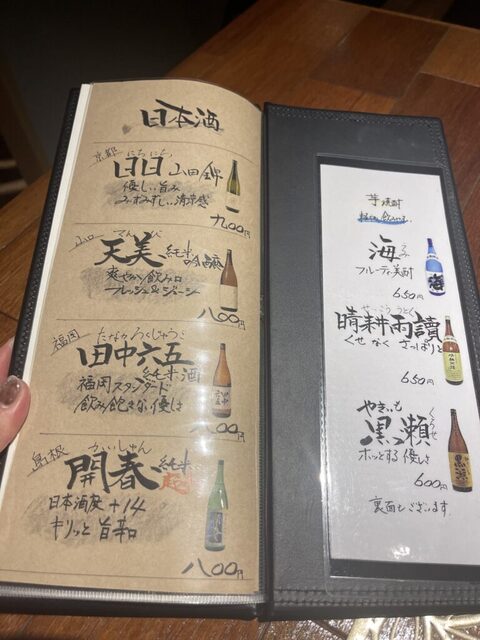 日本酒
京都
にちにち
日日 山田錦
優しい旨み
みずみずしい清涼感
九00円
山口
てんび
天美 純米吟醸
爽やか飲み口
フレッシュ&ジューシー
八00円
福岡
たなかろくじゅうご
田中六五
純米酒
福岡スタンダード
飲み飽きない優しさ
八00円
島根
かいしゅん
開春 純米
超
日本酒度 +14
キリッと旨辛口
八00円
芋焼酎
海
うみ
フルーティ芋酎
650円
せいこううどく
晴耕雨讀
くせなくさっぱりと
650円
やきいも
黒瀬
くろせ
ホッとする優しさ
600円
裏面もございます